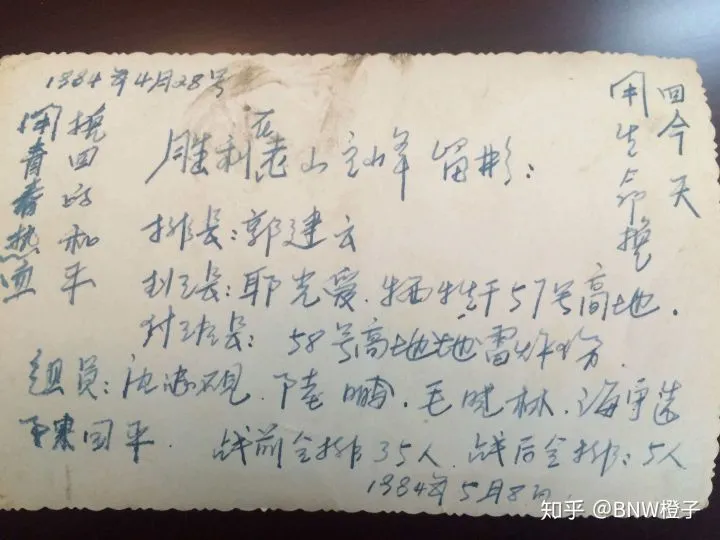 1984年4月28号
用青春热血
换回的和平
胜利在老山主峰留影：
用生命换
回今天
排长：郭建云
班长：耶光爱．牺牲于57号高地．
付班长： 58号高地地雷炸伤
组员：沈忠砚．陆鹏．毛晓林．海
国平． 战前全排35人．战后全排：5人
1984年5月8日
知乎 @BNW橙子